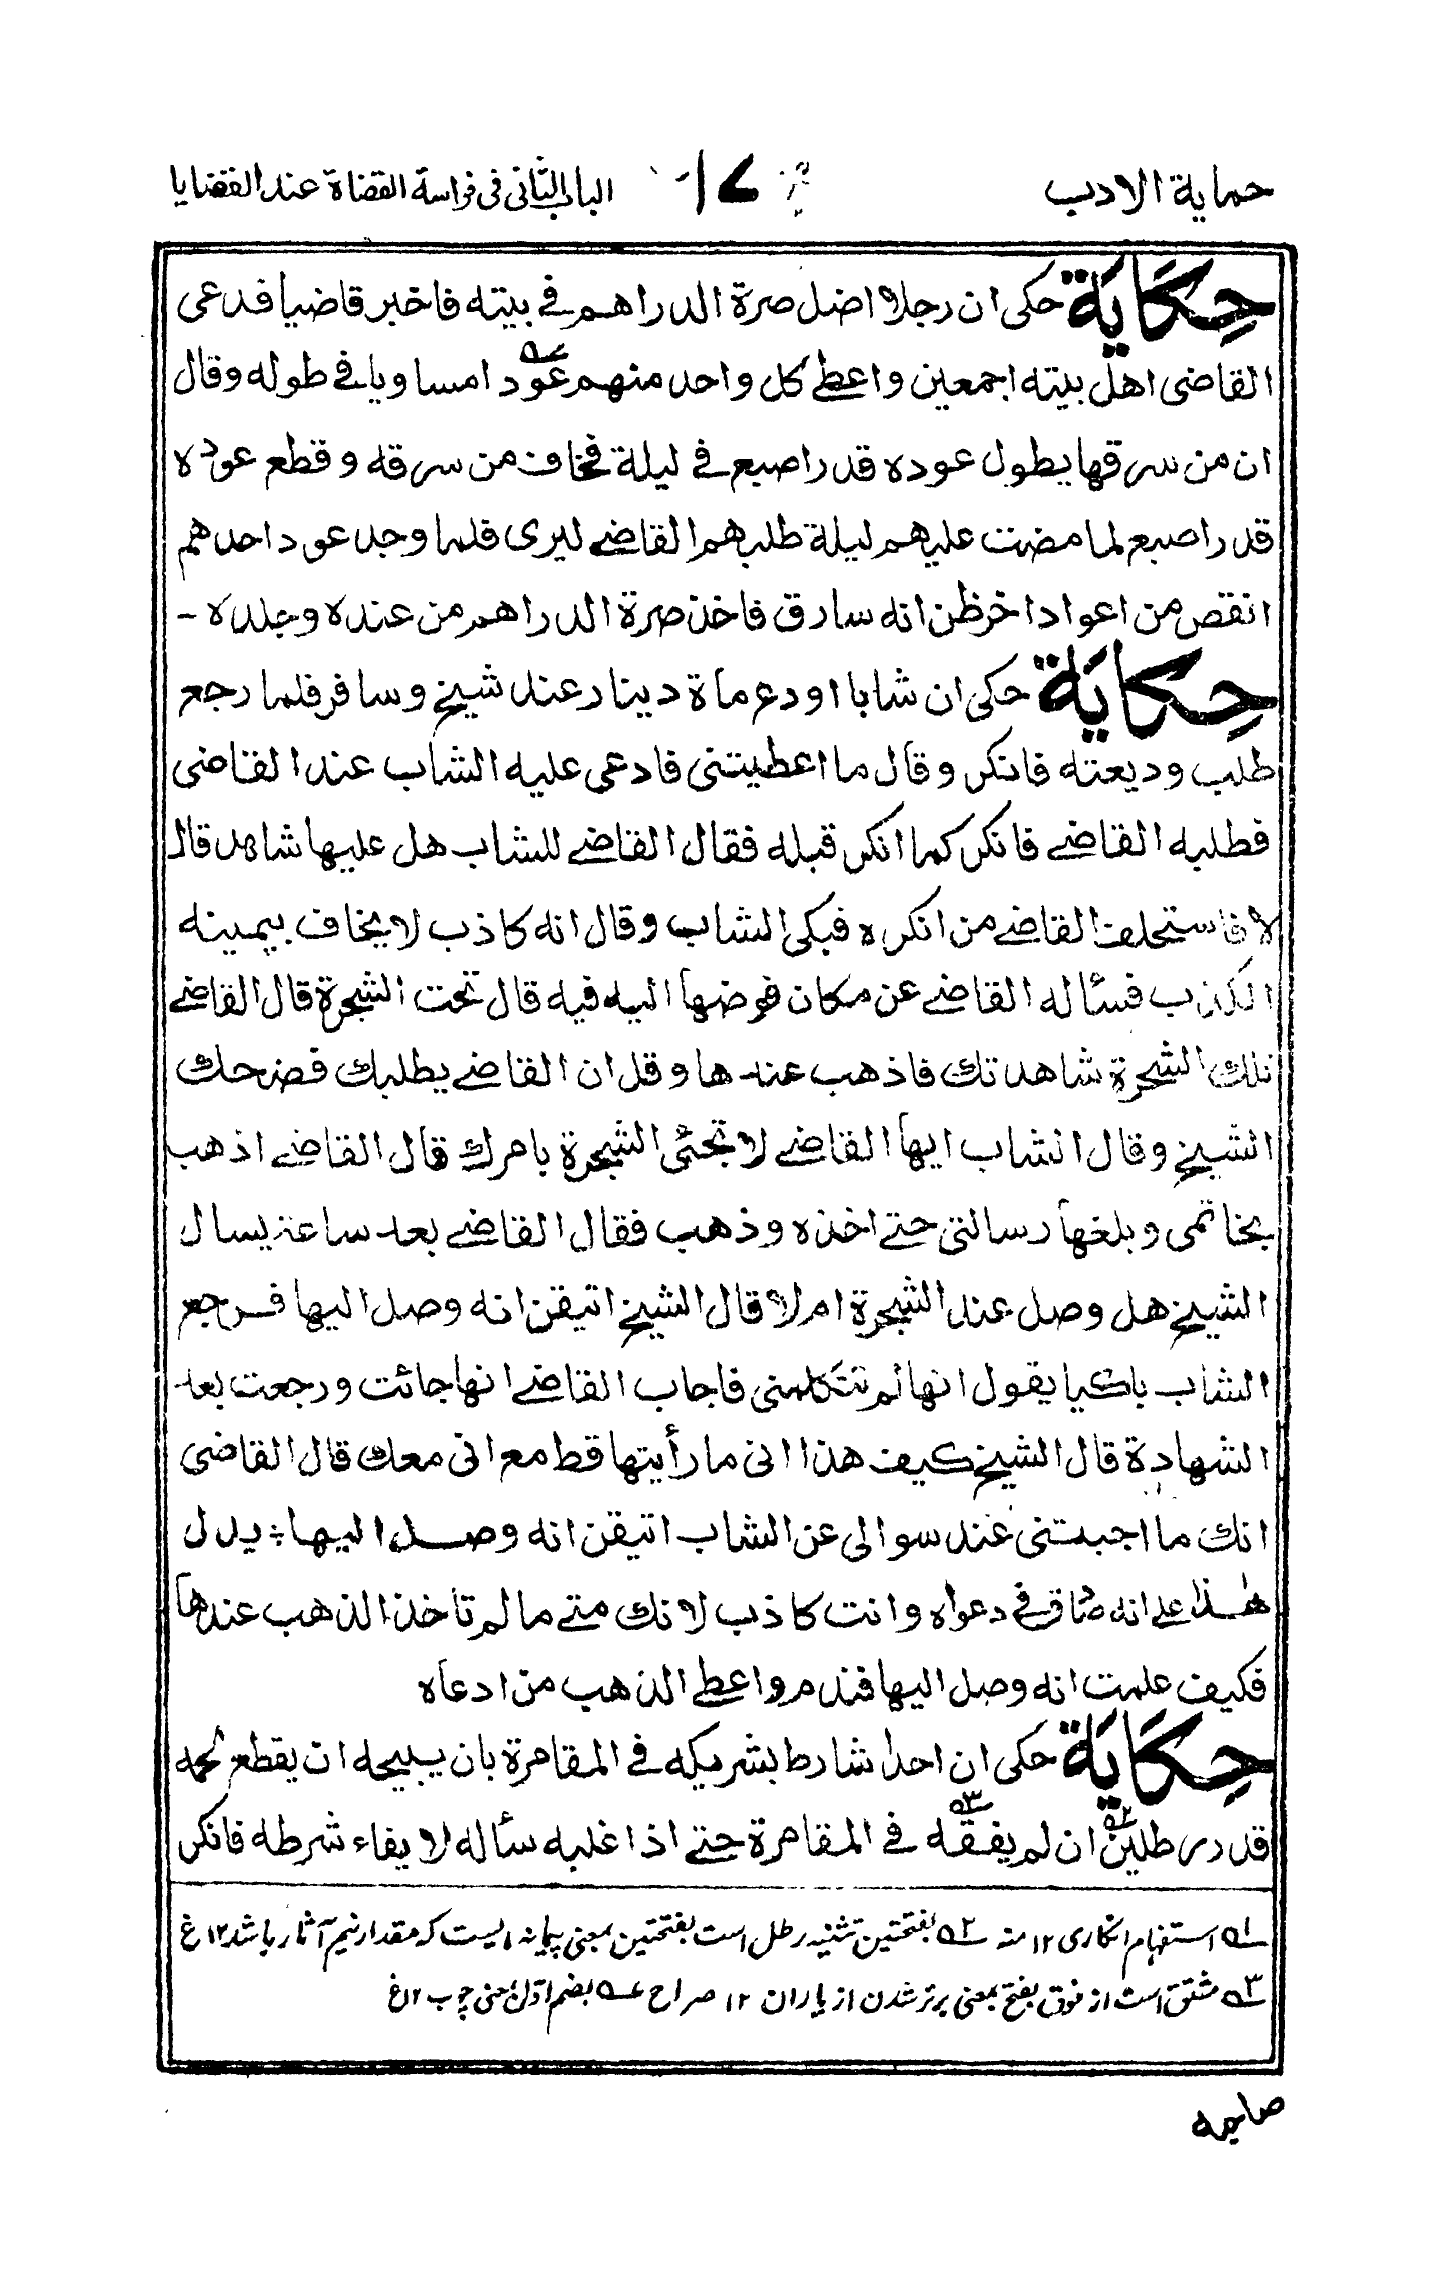 حماية الادب ١٧ الباب الثانى فى فراسة القضاة عند القضايا
حِكَايَة حكى ان رجلا اضل صرة الدراهم فے بيته فاخبر قاضيا فدعى
القاضى اهل بيته اجمعين واعطے كل واحد منهم عودا مساويا فے طوله وقال
ان من سرقها يطول عوده قدر اصبع فے ليلة فخاف من سرقه وقطع عوده
قدر اصبع لما مضت عليهم ليلة طلبهم القاضے ليرى فلما وجد عود احدهم
انقص من اعواد اخر ظن انه سارق فاخذ صرة الدراهم من عنده وجلده -
حِكَايَة حكى ان شابا اودع مأة دينار عند شيخ وسافر فلما رجع
طلب وديعته فانكر وقال ما اعطيتنى فادعى عليه الشاب عند القاضى
فطلبه القاضے فانكر كما انكر قبله فقال القاضے للشاب هل عليها شاهد قال
لا فاستحلف القاضے من انكره فبكى الشاب وقال انه كاذب لا يخاف بيمينه
الكذب فسأله القاضے عن مكان فوضها اليه فيه قال تحت الشجرة قال القاضے
تلك الشجرة شاهدتك فاذهب عندها وقل ان القاضے يطلبك فضحك
الشيخ وقال الشاب ايها القاضے لا تجئى الشجرة بامرك قال القاضے اذهب
بخاتمى وبلغها رسالتى حتے اخذه وذهب فقال القاضے بعد ساعة يسال
الشيخ هل وصل عند الشجرة ام لا قال الشيخ اتيقن انه وصل اليها فرجع
الشاب باكيا يقول انها لم تتكلمنى فاجاب القاضے انها جائت ورجعت بعد
الشهادة قال الشيخ كيف هذا انى ما رأيتها قط مع انى معك قال القاضى
انك ما اجبتنى عند سوالى عن الشاب اتيقن انه وصل اليها ÷ يدل
هٰذا علے انه صادق فے دعواه وانت كاذب لانك متے ما لم تاخذ الذهب عندها
فكيف علمت انه وصل اليها فندم واعطے الذهب من ادعاه
حِكَايَة حكى ان احدا شارط بشريكه فے المقامرة بان يبيحه ان يقطع لحمه
قدر رطلين ان لم يفقه فے المقامرة حتے اذا غلبه سأله لايفاء شرطه فانكر
١ے استفهام انكارى ١٢ منه ٢ے بفتحتين تثنيه رطل است بفتحتين بمعنى پيمانه ايست كه مقدار نيم آثار باشد ١٢ غ
٣ے مشتق است از فوق بفتح بمعنى برتر شدن از ياران ١٢ صراح ے بضم اول بمعنى چوب ١٢ غ
صاحبه